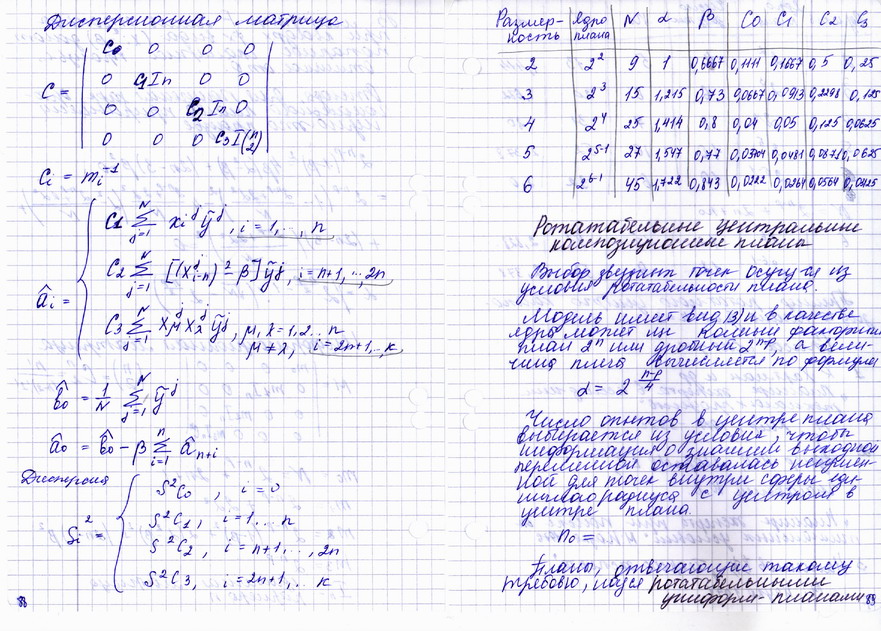 Дисперсионная матрица
C = | C0 0 0 0 |
| 0 C1In 0 0 |
| 0 0 C2In 0 |
| 0 0 0 C3I(n 2) |
Ci = mi^-1
âi = { C1 Σ j=1 N xi^j ỹ^j, i = 1, .., n
C2 Σ j=1 N [(x^j i-n)^2 - β] ỹ^j, i = n+1, .., 2n
C3 Σ j=1 N xμ^j xλ^j ỹ^j, μ, λ = 1,2.. n
μ ≠ λ, i = 2n+1, .., к
b̂0 = 1/N Σ j=1 N ỹ^j
â0 = b̂0 - β Σ i=1 n â n+i
Дисперсия
Si^2 = { S^2C0, i = 0
S^2C1, i = 1... n
S^2C2, i = n+1, .., 2n
S^2C3, i = 2n+1, .. к
88
Размер-ность Ядро плана N α β C0 C1 C2 C3
2 2^2 9 1 0,6667 0,1111 0,1667 0,5 0,25
3 2^3 15 1,215 0,73 0,0667 0,0913 0,2298 0,125
4 2^4 25 1,414 0,8 0,04 0,05 0,125 0,0625
5 2^5-1 27 1,547 0,77 0,0481 0,0625
6 2^6-1 45 1,722 0,843 0,0222 0,0264 0,0564
Ротатабельные центральные
композиционные планы
Выбор звездных точек осущ-ся из
условия ротатабельности плана.
Модель имеет вид |3| и в качестве
ядра может полный факторный
план 2^n или дробный 2^n-p, а вели-
чина плеча вычисляется по формуле
α = 2^(n-p)/4
Число опытов в центре плана
выбирается из условия, чтобы
информация о значении выходной
переменной оставалась неизмен-
ной для точек внутри сферы еди-
ничного радиуса с центром в
центре плана.
n0 =
Планы, отвечающие такому
ротатабельными
униформ-планами
89